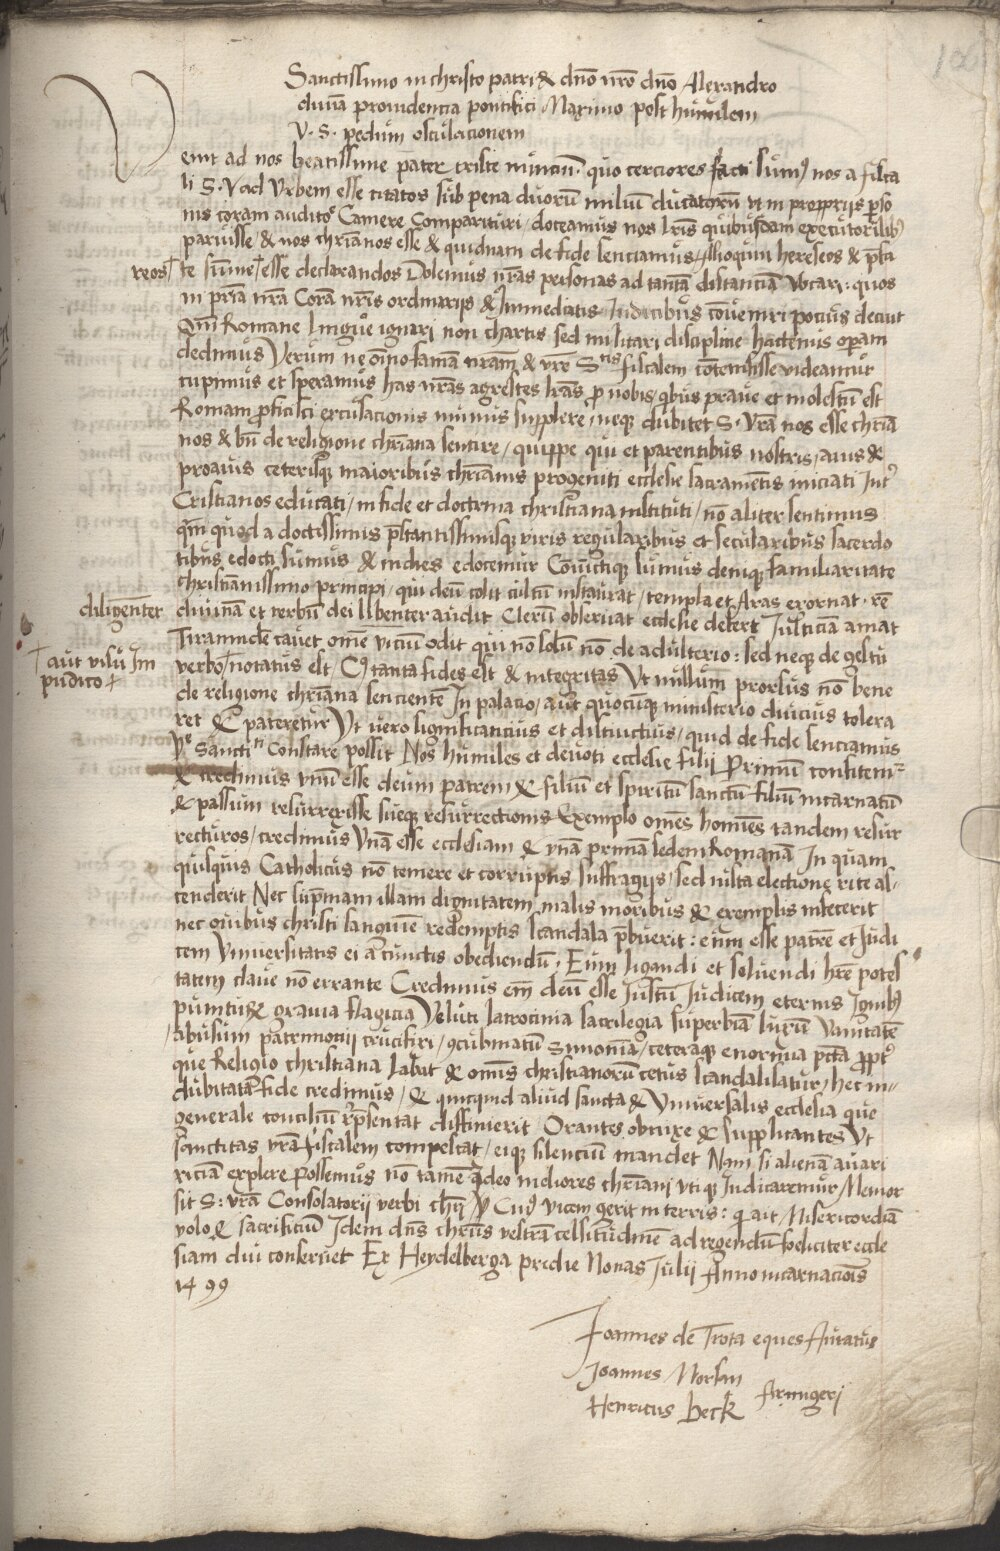 106
Sanctissimo in christo patri & dño nrõ dño Alexandro
diuiã prouidencia pontifici Maximo post humilem
V. S. pedum osculacionem
Venit ad nos beatissime pater triste nuncium. quo cerciores facti sumus nos a fisca
li S. V. ad Vrbem esse citatos sub pena duorum milium ducatorũ vt in proprijs perso
nis coram auditoᵉ Camere Comparituri / doceamus nos lrĩs quibusdam executorialibꝰ
paruisse / & nos chrĩanos esse & quidnam de fide senciamus / Alioquin hereseos & pͬta
reos te sum̃e esse declarandos Dolemus nrãs personas ad tantã distanciã vocari: quos
in prĩa nrã Corã nrĩs ordinarijs & Immediatis Iudicibus cõueniri pocius decuit
Qm̃ Romane lingue ignari non chartis sed militari discipline hactenus operam
dedimus Verum ne oĩno famã nram̃ & vrẽ Stⁱˢ fiscalem cõtempsisse videamur
cupimus et speramus has nrãs agrestes lrãs ꝓ nobis / qbus praue et molestũ est
Romam proficisci excusacionis munus supplere / neque dubitet S. vrã nos esse chrĩa
nos & bñ de religione chrĩana sentire / quippe qui et parentibus nostris / auis &
proauis ceterisque maioribus chrĩanis progeniti ecclesie sacramentis iniciati Intʳ
Cristianos educati / in fide et doctrina christiana instituti / nõ aliter sentimus
qm̃ quod a doctissimis pͬstantissimisque viris regularibus et secularibus sacerdo
tibus edocti sumus & indies edocemur Coniũctique sumus denique familiaritate
Christianissimo principi / qui deũ colit cultũ instaurat / templa et Aras exornat. rẽ
diligenter diuinã et verbũ dei libenter audit Clerũ obseruat ecclesie defert Iusticiã amat
Tirannidẽ cauet omẽ viciũ odit qui nõ solũ nõ de adulterio: sed neque de gestu
aut visu Im
pudico
verbo notatus est / Cꝰ tanta fides est & integritas Vt nullum prorsus nõ bene
de religione chrĩana sencientẽ In palacio / aut quocũque ministerio diucius tolera
ret & pateretur Vt vero significancius et distinctius / quid de fide senciamus
Vᵉ Sanctiᵗⁱ Constare possit Nos humiles et deuoti ecclesie filij Primũ confitemʳ
& credimus vnũ esse deum patrem & filiũ et spiritũ sanctũ filiũ incarnatũ
& passum resurrexisse sueque resurrectionis Exemplo omẽs homines tandem resur
recturos / credimus Vnã esse ecclesiam & vnã primã sedem Romanã In quam
quisquis Catholicus nõ temere et corruptis suffragijs / sed iusta electione rite as-
cenderit Nec supͬmam illam dignitatem malis moribus & exemplis infecerit
nec oĩnibus christi sanguĩe redemptis scandala pͬbuerit: eum esse patrẽ et Iudi
cem Vniuersitatis ei a cunctis obediendũ. Eum ligandi et soluendi hrẽ potes
tatem claue nõ errante Credimus em̃ deũ esse Iustũ Iudicem eternis Ignibꝰ
puniturũ grauia flagicia Veluti latrocinia sacrilegia superbiã luxũ Vanitatẽ
abusum patrimonij crucifixi / ꝯcubinatũ Simoniã / ceteraque enormia pctã ꝓptʳ
que Religio christiana labat & omĩs christianorũ cetus scandalisatur / hec in-
dubitatã fide credimus / & quicquid aliud sancta & Vniuersalis ecclesia que
generale conciliũ rp̃sentat diffinierit Orantes obnixe & supplicantes Vt
sanctitas vrã fiscalem compescat / eique silenciũ mandet Nam si alienã auari
riciã explere possemus nõ tamẽ adeo meliores chrĩani vtique Iudicaremur / Memor
sit S: vrã Consolatorij verbi chrĩ Cuiꝰ vicem gerit in terris: qͥ ait / Misericordiã
volo & sacrificiũ Idem dñs chrũs vestrã celsitudinẽ ad regendũ foeliciter eccle
siam diu conseruet Ex Heydelberga pridie Nonas Iulij Anno incarnacõis
1499
Joannes de Trota eques Auratus
Joannes
Henricus Beck Armigeri